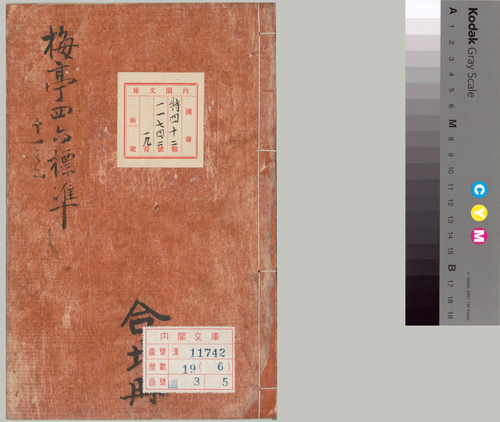 梅亭四六標準
内閣文庫
漢書
特四十二類
一一七四二號
一九冊
函
架
合
冊
内閣文庫
番號 漢 11742
冊數 19(6)
函號 3 5
Kodak Gray Scale
A 1 2 3 4 5 6 M 8 9 10 11 12 13 14 15 B 17 18 19
C Y M